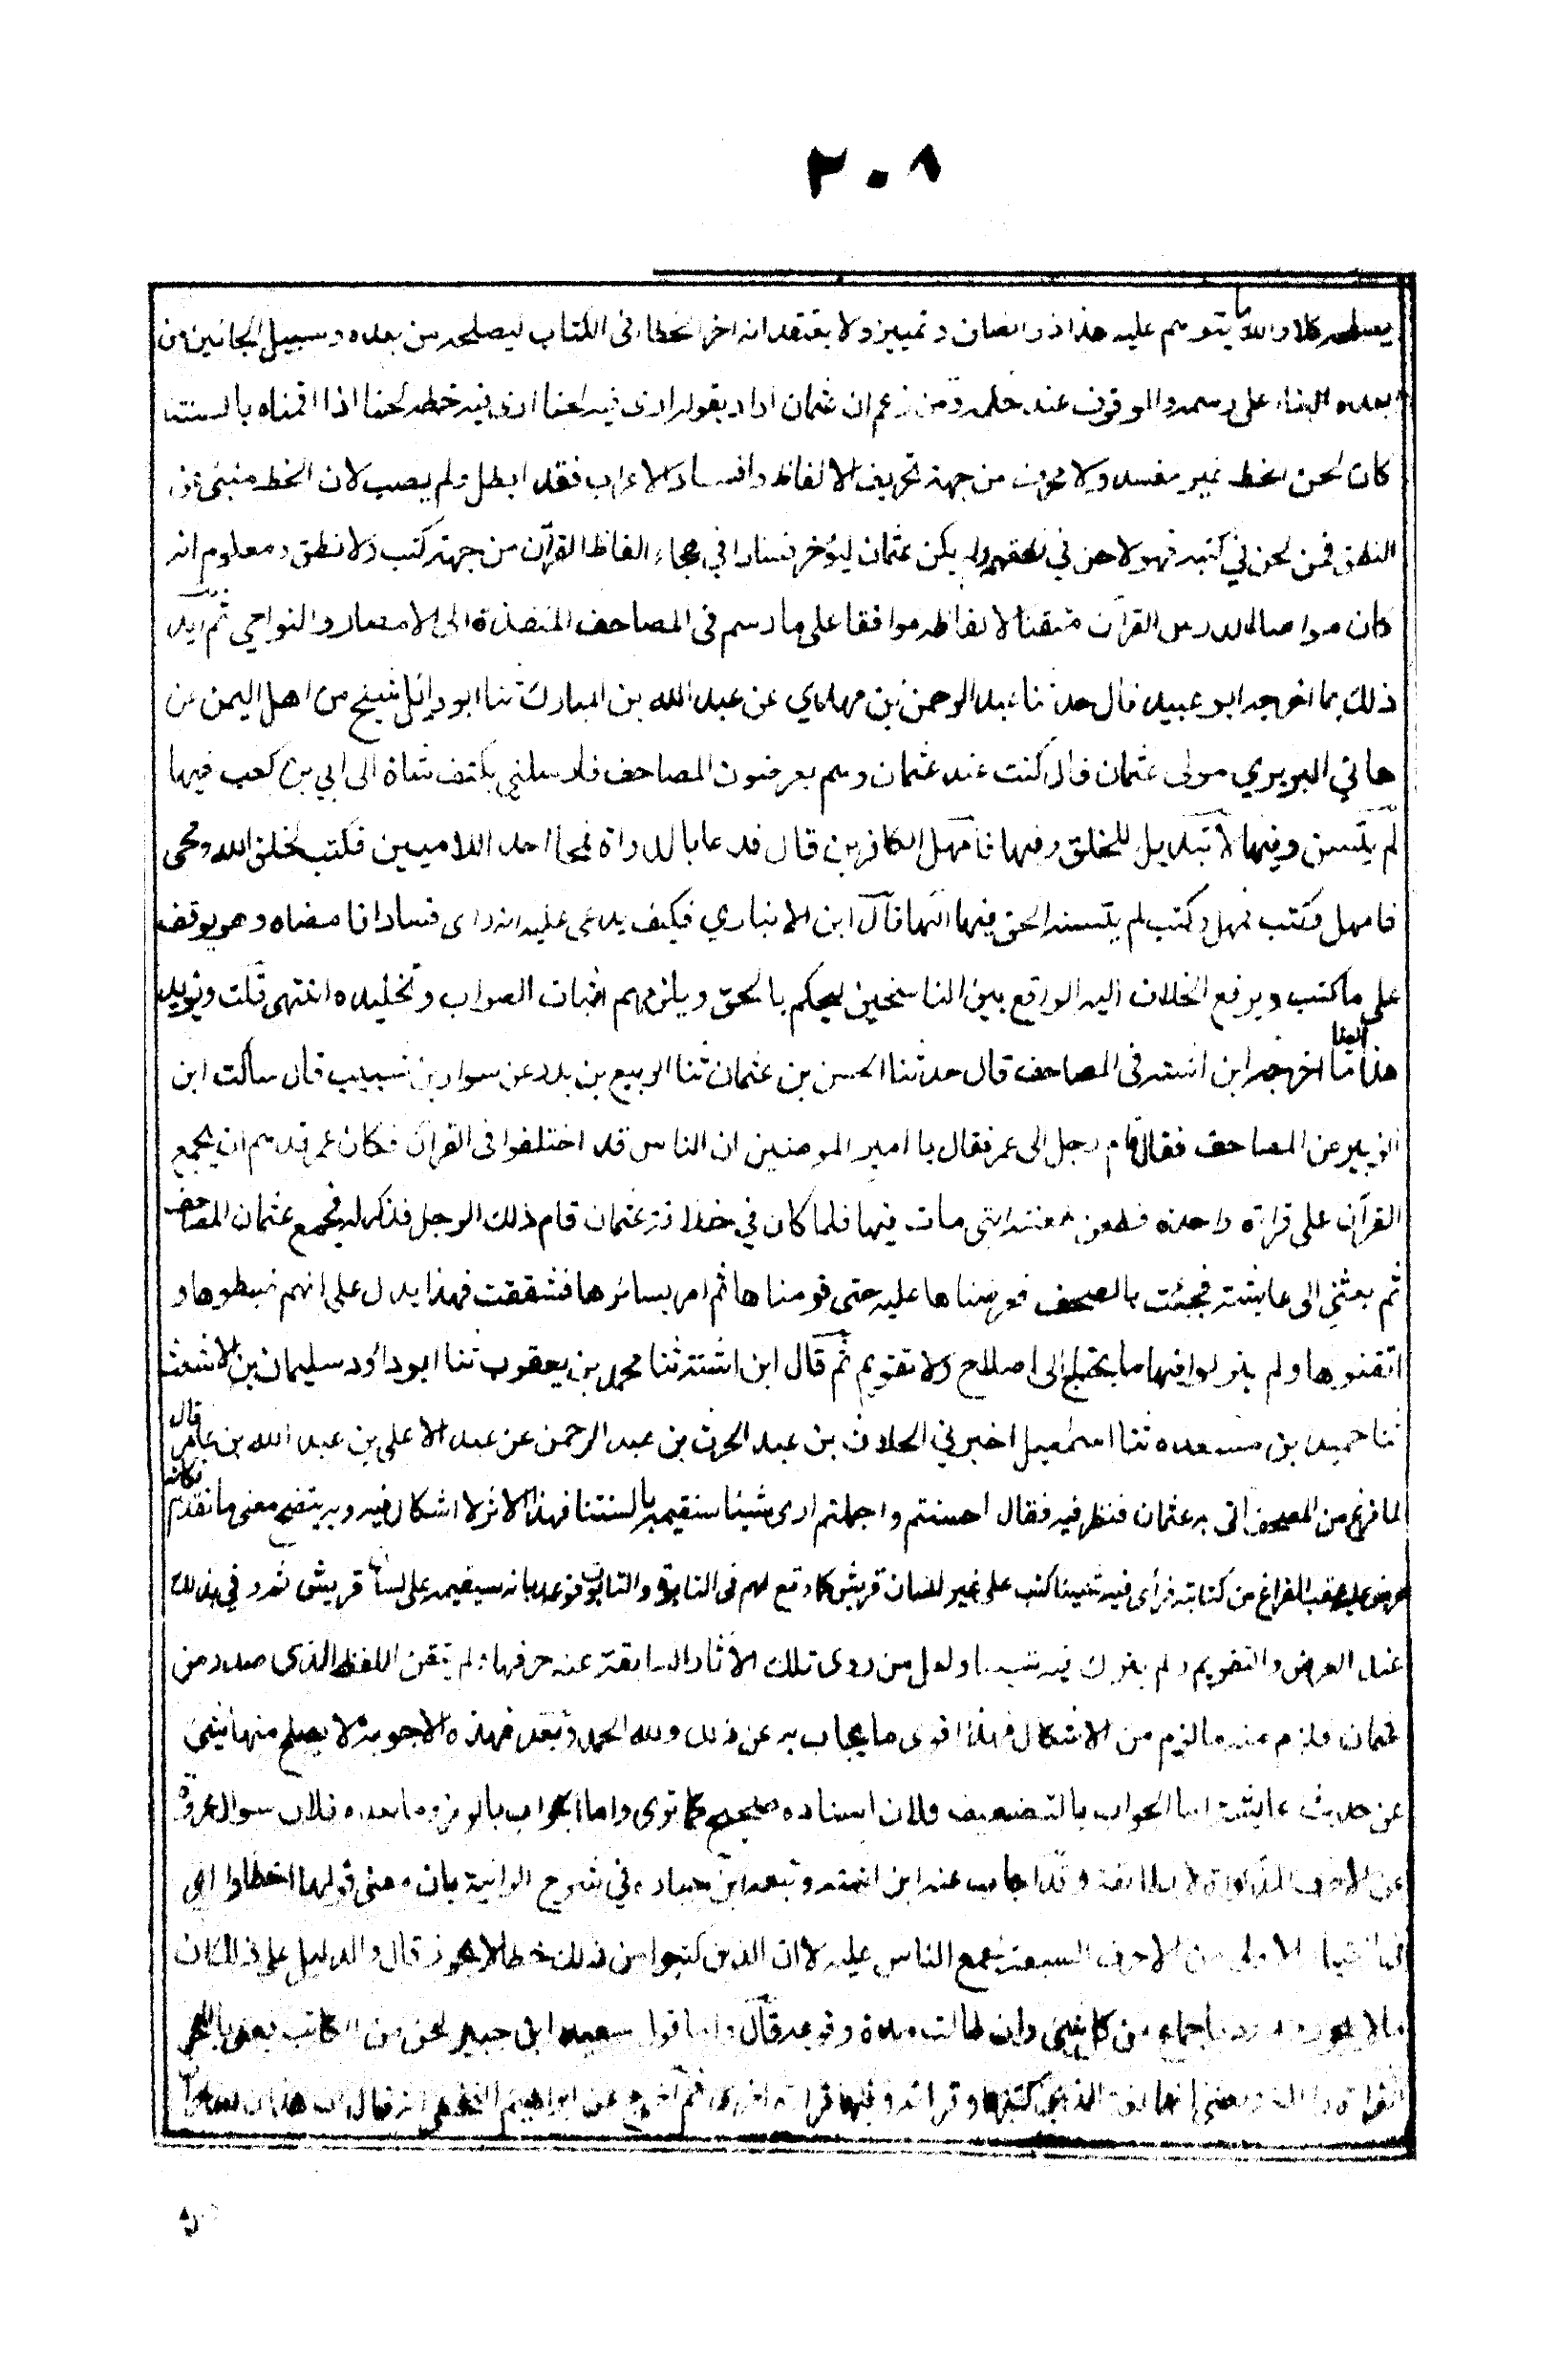 ٢٠٨
يصلحه كلا والله ما يتوهم عليه هذا ذو انصاف وتمييز ولا يعتقد انه اخر الخطاء فى الكتاب ليصلحه من بعده وسبيل الجائين من
بعده البناء على رسمه والوقوف عند حكمه ومن زعم ان عثمان اراد بقوله ارى فيه لحنا ارى فيه خطه لحنا اذا اقمناه بالسنتنا
كان لحن الخط غير مفسد ولا محرف من جهة تحريف الالفاظ وافساد الاعراب فقد ابطل ولم يصب لان الخط منبئ عن
النطق فمن لحن في كتبه فهو لاحن في نطقه ولم يكن عثمان ليؤخر فسادا في هجاء الفاظ القرآن من جهة كتب ولا نطق ومعلوم انه
كان مواصلا لدرس القرآن متقنا لالفاظه موافقا على ما رسم فى المصاحف المنفذة الى الامصار والنواحي ثم ايد
ذلك بما اخرجه ابو عبيد قال حدثنا عبد الرحمن بن مهدي عن عبد الله بن المبارك ثنا ابو وائل شيخ من اهل اليمن عن
هانئ البربري مولى عثمان قال كنت عند عثمان وهم يعرضون المصاحف فارسلني بكتف شاة الى ابي بن كعب فيها
لم يتسن وفيها لا تبديل للخلق وفيها فامهل الكافرين قال فدعا بالدواة فمحا احد اللامين فكتب لخلق الله ومحى
فامهل وكتب فمهل وكتب لم يتسنه الحق فيها الها قال ابن الانباري فكيف يدعى عليه انه راى فسادا فامضاه وهو يوقف
على ما كتب ويرفع الخلاف اليه الواقع بين الناسخين ليحكم بالحق ويلزمهم اثبات الصواب وتخليده انتهى قلت ويؤيد
هذا ايضا ما اخرجه ابن اشته فى المصاحف قال حدثنا الحسن بن عثمان ثنا الربيع بن بدر عن سوار بن شبيب قال سألت ابن
الزبير عن المصاحف فقال قام رجل الى عمر فقال يا امير المومنين ان الناس قد اختلفوا فى القرآن فكان عمر قد هم ان يجمع
القرآن على قراءة واحدة فطعن طعنته التى مات فيها فلما كان في خلافة عثمان قام ذلك الرجل فذكر له فجمع عثمان المصاحف
ثم بعثني الى عايشة فجئت بالصحف فعرضناها عليه حتى قومناها ثم امر بسائرها فشققت فهذا يدل على انهم ضبطوها و
اتقنوها ولم يتركوا فيها ما يحتاج الى اصلاح ولا تقويم ثم قال ابن اشته ثنا محمد بن يعقوب ثنا ابو داود سليمان بن الاشعث
ثنا حميد بن مسعدة ثنا اسمعيل اخبرني الحارث بن عبد الرحمن عن عبد الاعلى بن عبد الله بن عامر قال
لما فرغ من المصحف اتى به عثمان فنظر فيه فقال احسنتم واجملتم ارى شيئا سنقيمه بالسنتنا فهذا الاثر لا اشكال فيه وبه يتضح معنى ما تقدم فكانه
عرض عليه عقب الفراغ من كتابته فرأى فيه شيئا كتب على غير لسان قريش كما وقع لهم فى التابوة والتابوت فوعد بانه سيقيمه على لسان قريش ثم وفي بذلك
عند العرض والتقويم ولم يترك فيه شيئا ولعل من روى تلك الآثار السابقة عنه حرفها ولم يتقن اللفظ الذى صدر من
عثمان فلزم منه ما لزم من الاشكال فهذا اقوى ما يجاب به عن ذلك ولله الحمد وبعد فهذه الاجوبة لا يصلح منها شئ
عن حديث عايشة اما الجواب بالتضعيف فلان اسناده صحيح كما ترى واما الجواب بالرمز وما بعده فلان سوال عروة
عن الاحرف المذكورة لا يطابقه وقد اجاب عنه ابن اشته وتبعه ابن جبارة في شرح الرائية بان معنى قولها اخطاوا اى
فى اختيار الاولى من الاحرف السبعة لجمع الناس عليه لا ان الذى كتبوا من ذلك خطا لا يجوز قال والدليل على ذلك ان
ما لا يجوز مردود باجماع من كل شئ وان طالت مدة وقوعه قال واما قول سعيد ابن جبير لحن من الكاتب يعنى باللحن
القراءة واللغة يعنى انها لغة الذى كتبها وقراءته وفيها قراءة اخرى ثم اخرج عن ابراهيم النخعى انه قال ان هذان لساحران